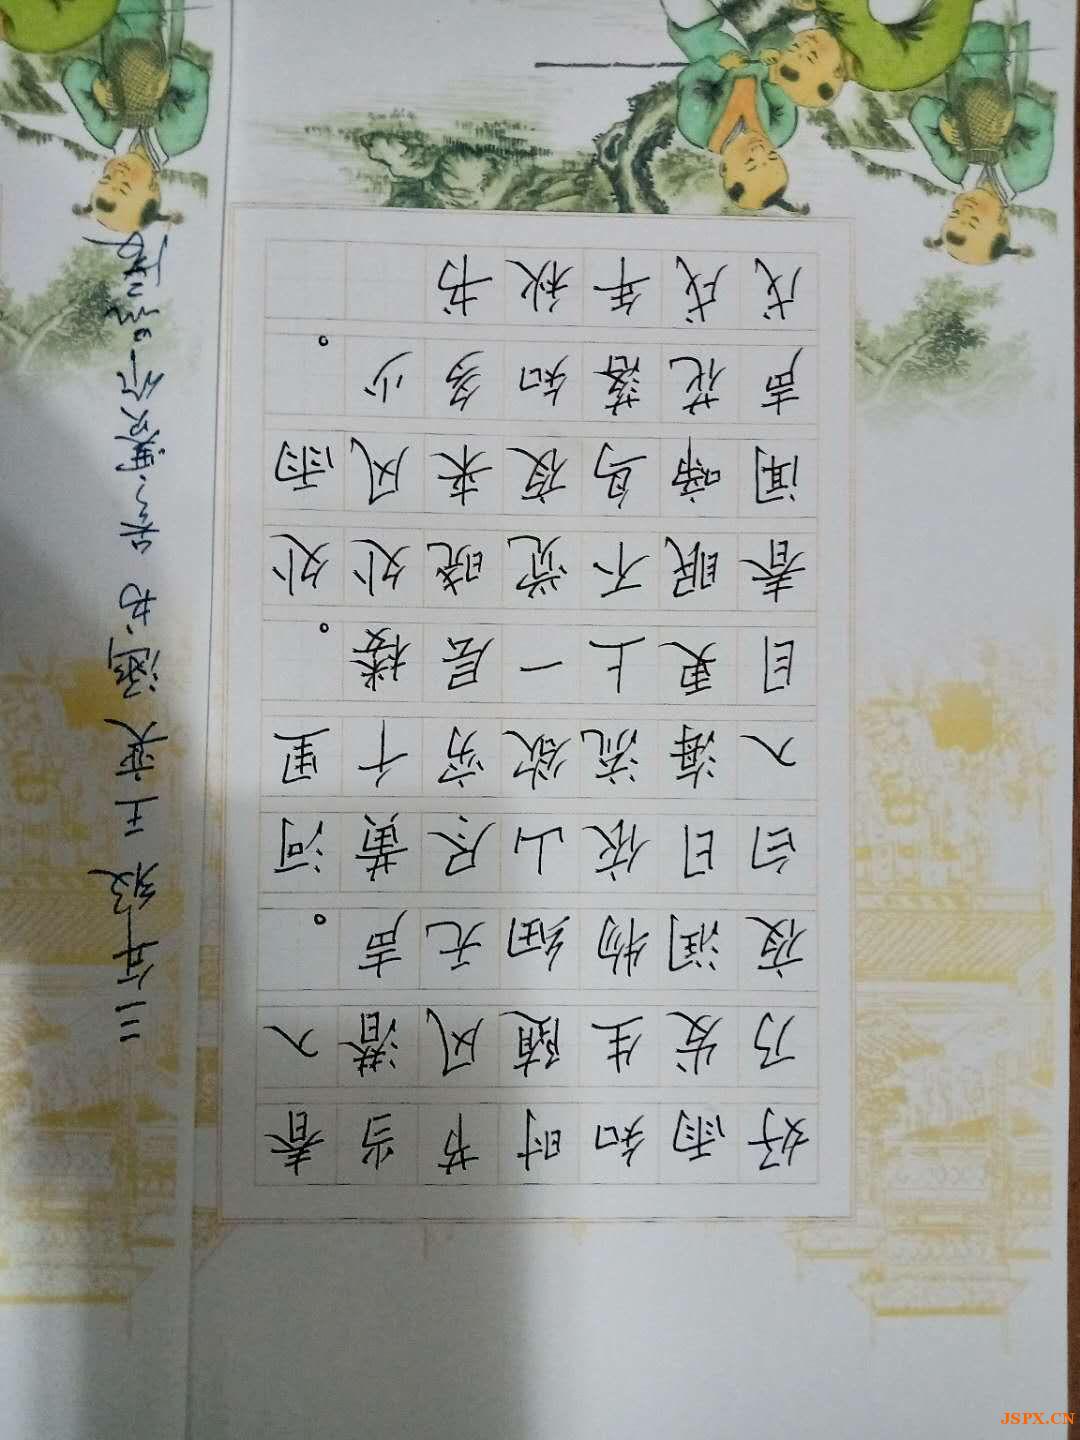 好雨知时节当春
乃发生随风潜入
夜润物细无声。
白日依山尽黄河
入海流欲穷千里
目更上一层楼。
春眠不觉晓处处
闻啼鸟夜来风雨
声花落知多少。
戊戌年秋书
三年级王奕涵书
JSPX.CN